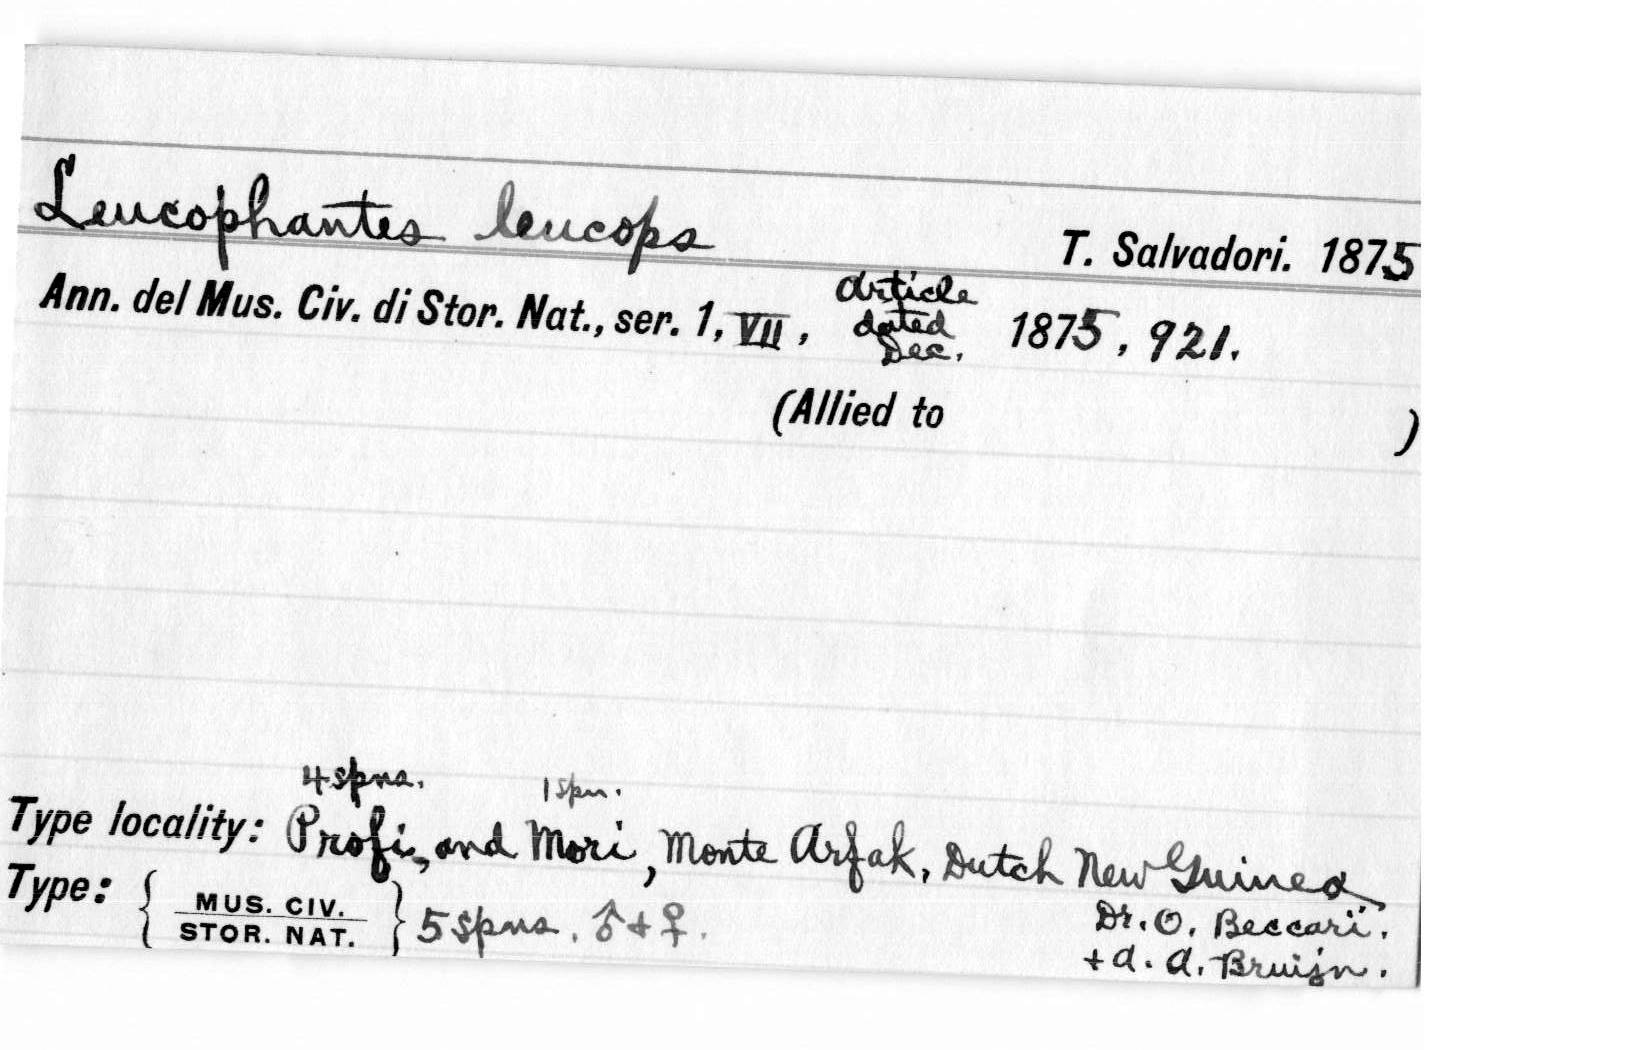 Leucophantes leucops
T. Salvadori. 1875
Ann. del Mus. Civ. di Stor. Nat., ser. 1, VII, Article dated Dec. 1875, 921.
(Allied to )
4 spns. 1 spn.
Type locality: Profi, and Mori, Monte Arfak, Dutch New Guinea
Type: { MUS. CIV. STOR. NAT. } 5 spns. ♂ + ♀.
Dr. O. Beccari.
+ A. A. Bruijn.